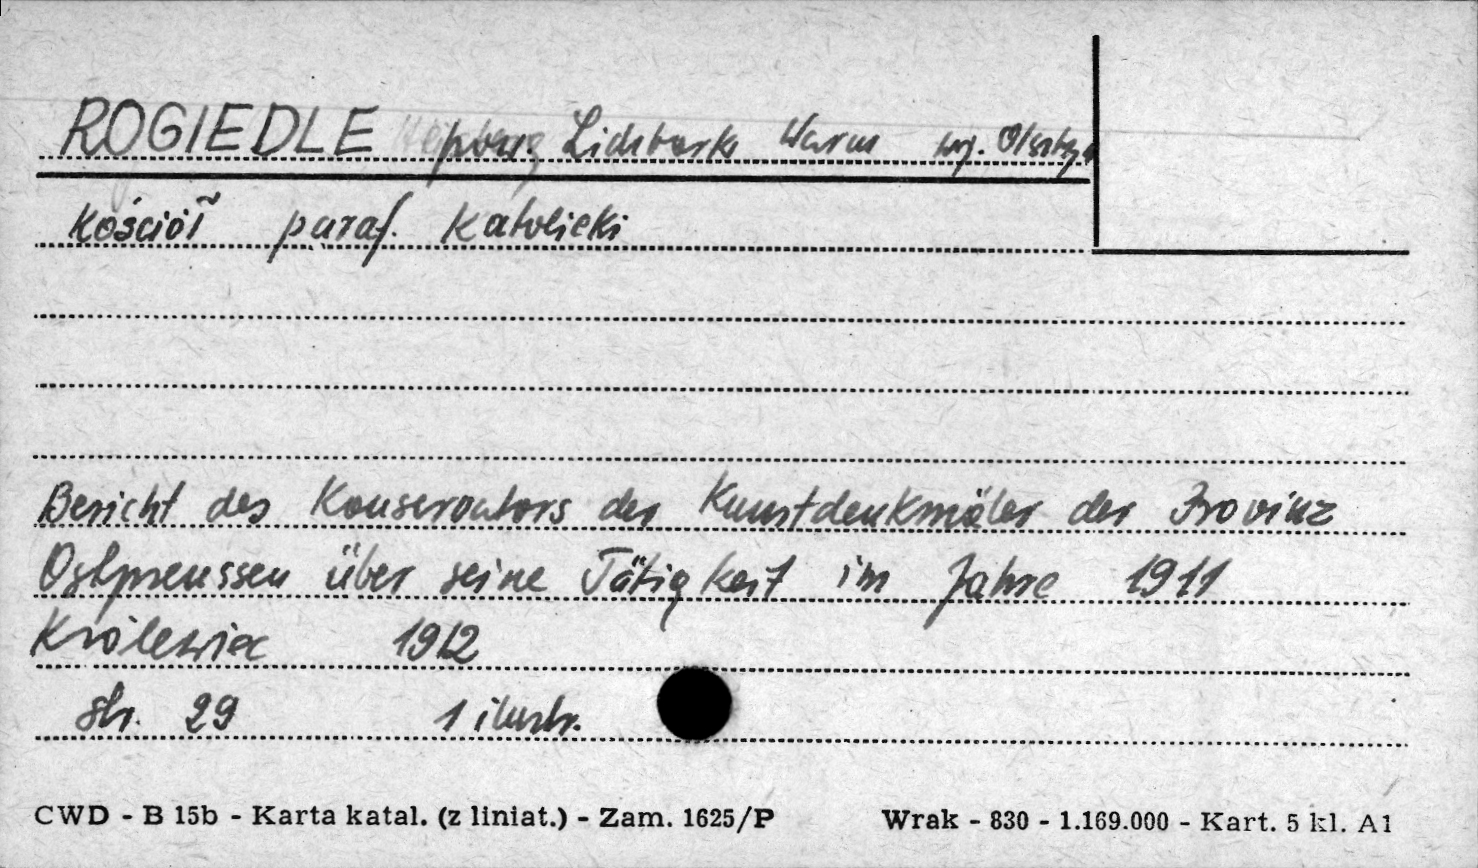 ROGIEDLE pow. Lidzbark Warm woj. Olsztyn
Kościół paraf. Katolicki
Bericht des Konservators der Kunstdenkmäler der Provinz
Ostpreussen über seine Tätigkeit im Jahre 1911
Królewiec 1912
str. 29 1 ilustr.
CWD - B 15b - Karta katal. (z liniat.) - Zam. 1625/P Wrak - 830 - 1.169.000 - Kart. 5 kl. A1